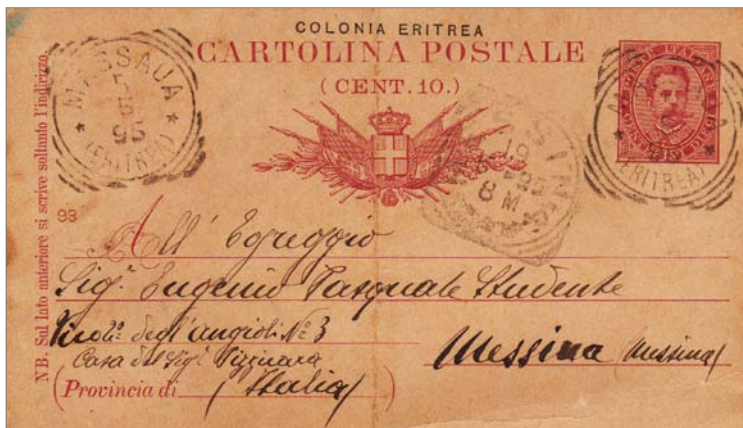 COLONIA ERITREA
CARTOLINA POSTALE
(CENT. 10.)
MASSAUA
5
5
95
(ERITREA)
POSTE ITALIANE
(ERITREA)
10
95
8 M
NB. Sul lato anteriore si scrive soltanto l'indirizzo.
93
All' Egreggio
Sig.r Eugenio Pasquale Studente
Vicolo degl'angioli No 3
Messina (Messina)
Casa del Sigr
(Provincia di (Italia)